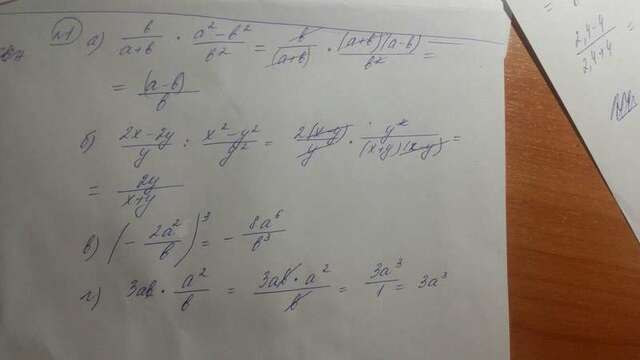 №1 а) b/(a+b) · (a²-b²)/b² = b/(a+b) · (a+b)(a-b)/b² =
= (a-b)/b
б) (2x-2y)/y : (x²-y²)/y² = 2(x-y)/y · y²/((x+y)(x-y)) =
= 2y/(x+y)
в) (-2a²/b)³ = -8a⁶/b³
г) 3ab · a²/b = (3ab · a²)/b = 3a³/1 = 3a³
=
(2,4-4)/(2,4+4) =